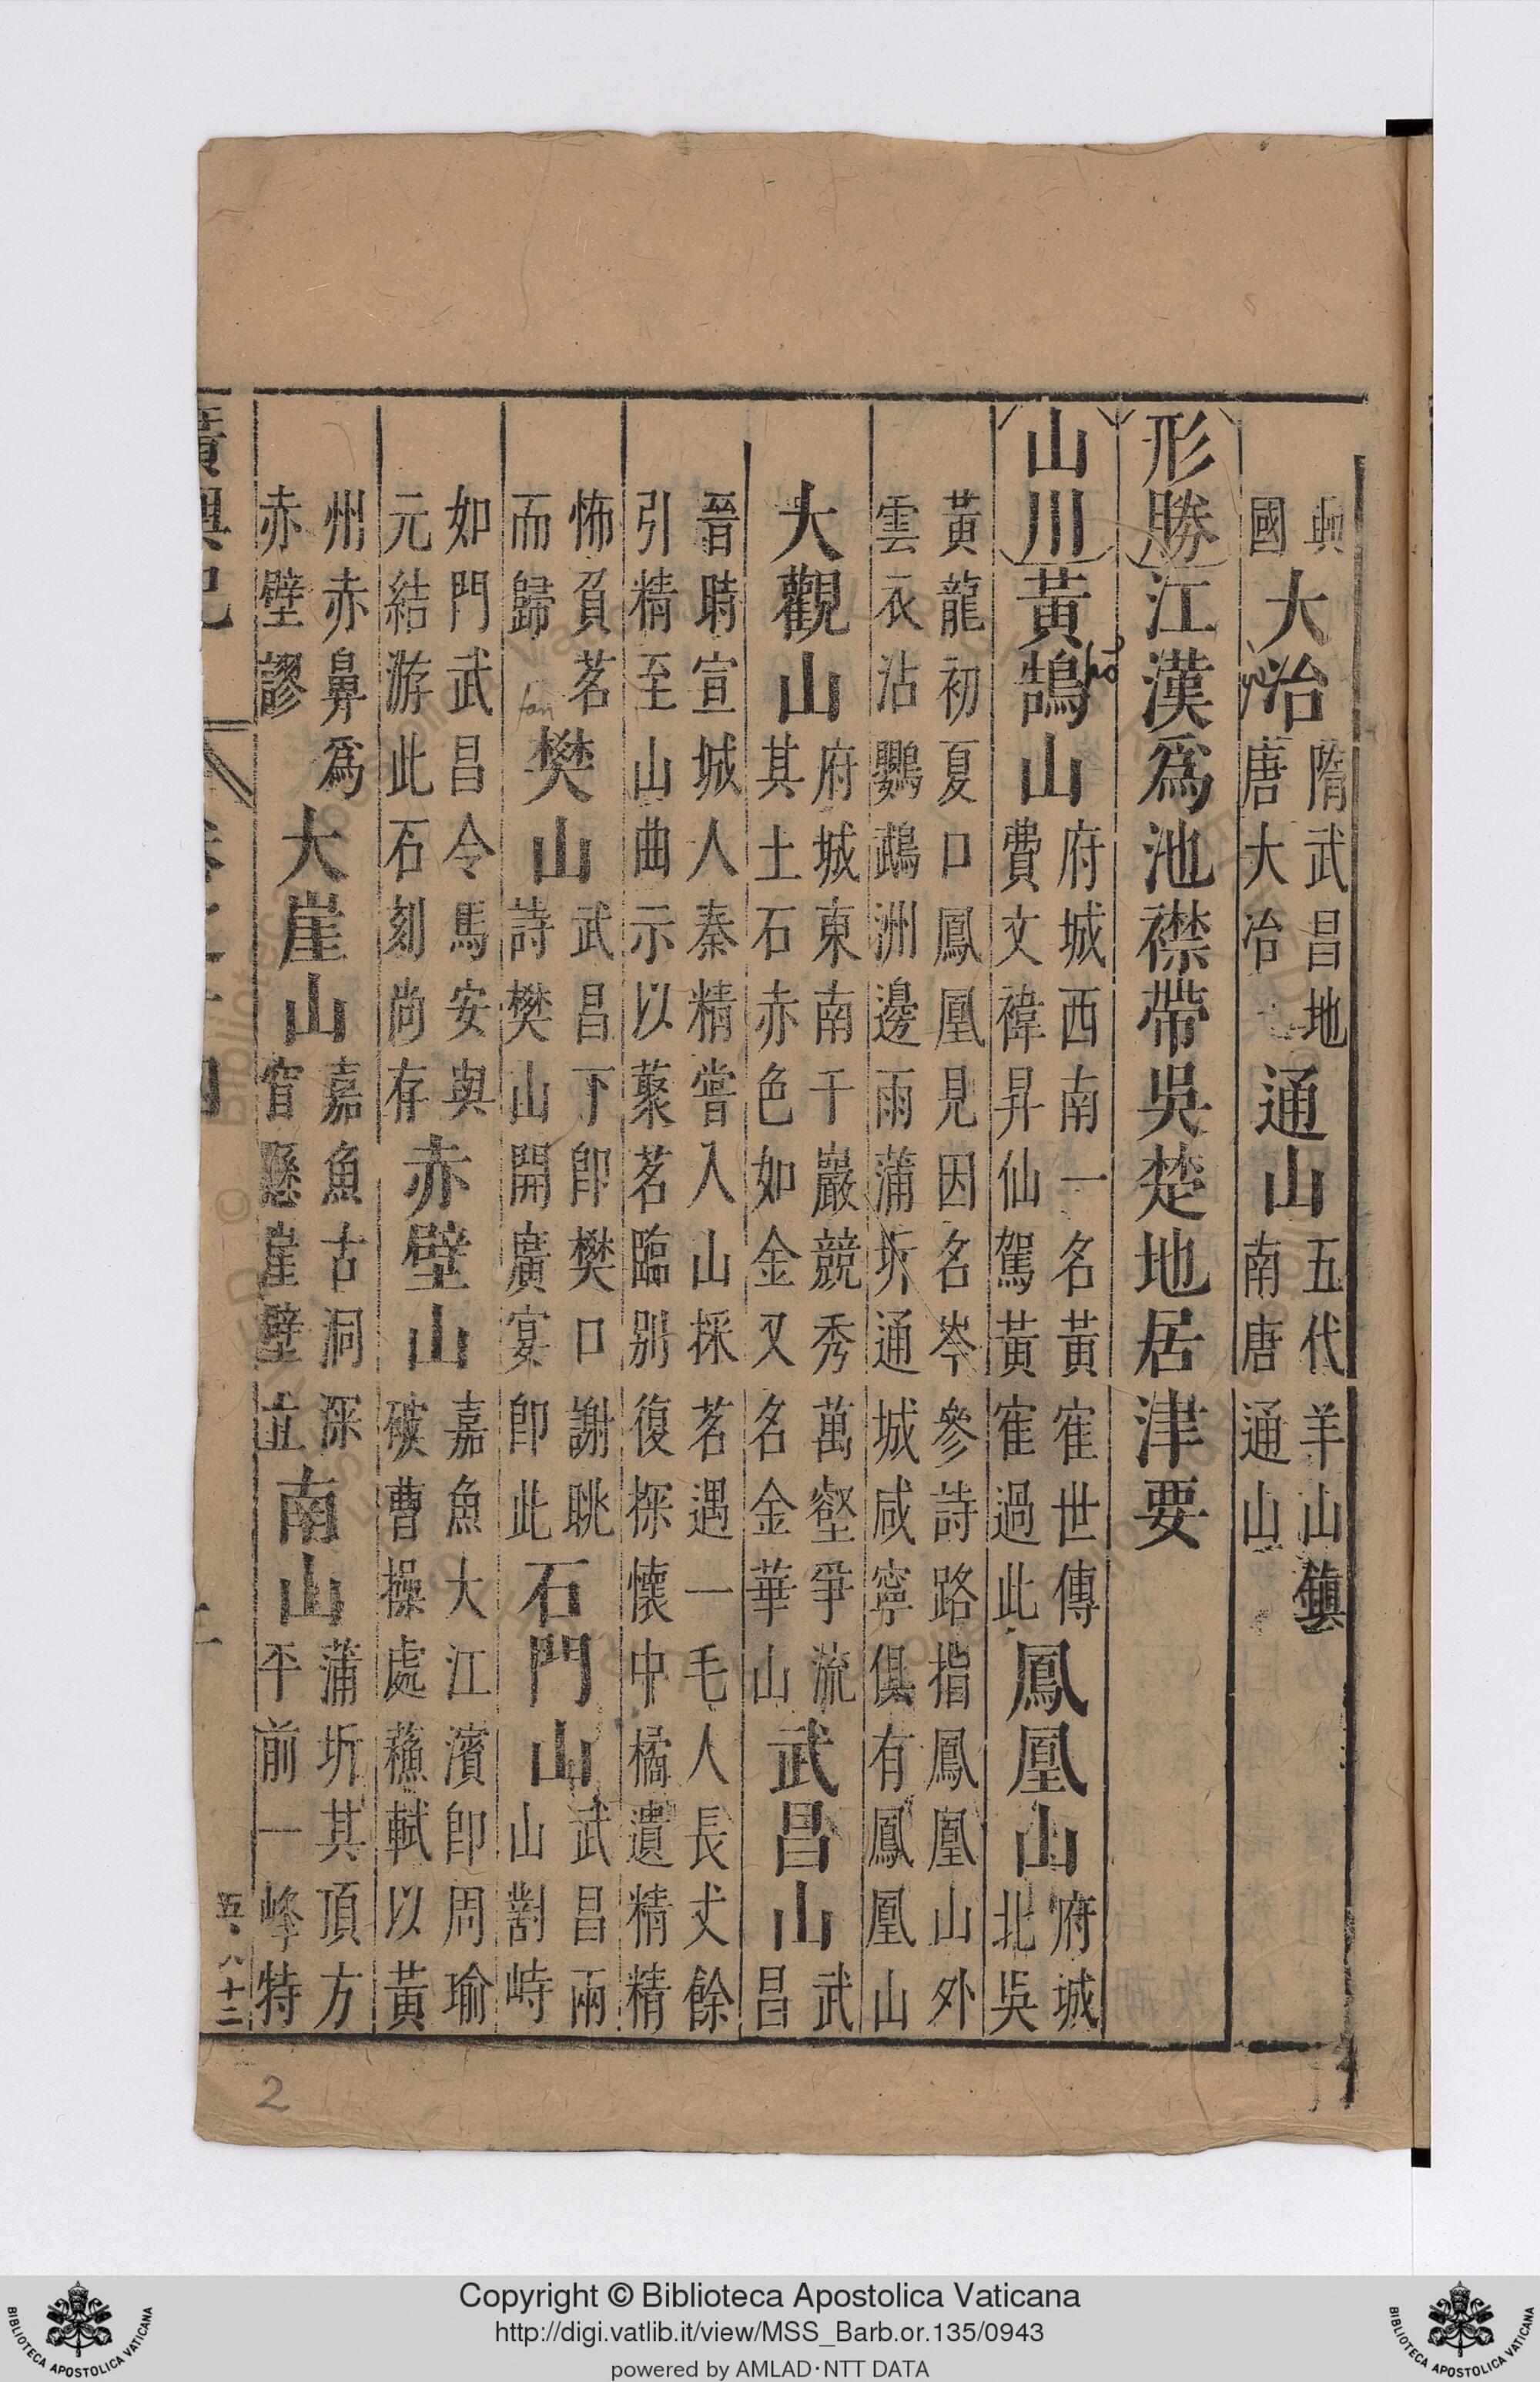 興國大冶隋武昌地唐大冶通山五代羊山鎮南唐通山
形勝江漢爲池襟帶吳楚地居津要
山川黃鵠山府城西南一名黃寉世傳費文禕昇仙駕黃寉過此鳳凰山府城北吳
黃龍初夏口鳳凰見因名岑參詩路指鳳凰山外雲衣沾鸚鵡洲邊雨蒲圻通城咸寧俱有鳳凰山
大觀山府城東南千巖競秀萬壑爭流其土石赤色如金又名金華山武昌山武昌
晉時宣城人秦精嘗入山採茗遇一毛人長丈餘引精至山曲示以藂茗臨別復探懷中橘遺精精
怖負茗而歸樊山武昌下卽樊口謝眺詩樊山開廣宴卽此石門山武昌兩山對峙
如門武昌令馬安與元結游此石刻尚存赤壁山嘉魚大江濱卽周瑜破曹操處蘓軾以黃
州赤鼻爲赤壁謬大崖山嘉魚古洞深窅懸崖壁立南山蒲圻其頂方平前一峰特
廣輿記
五、八十三
2
Copyright © Biblioteca Apostolica Vaticana
http://digi.vatlib.it/view/MSS_Barb.or.135/0943
powered by AMLAD·NTT DATA
BIBLIOTECA APOSTOLICA VATICANA
BIBLIOTECA APOSTOLICA VATICANA